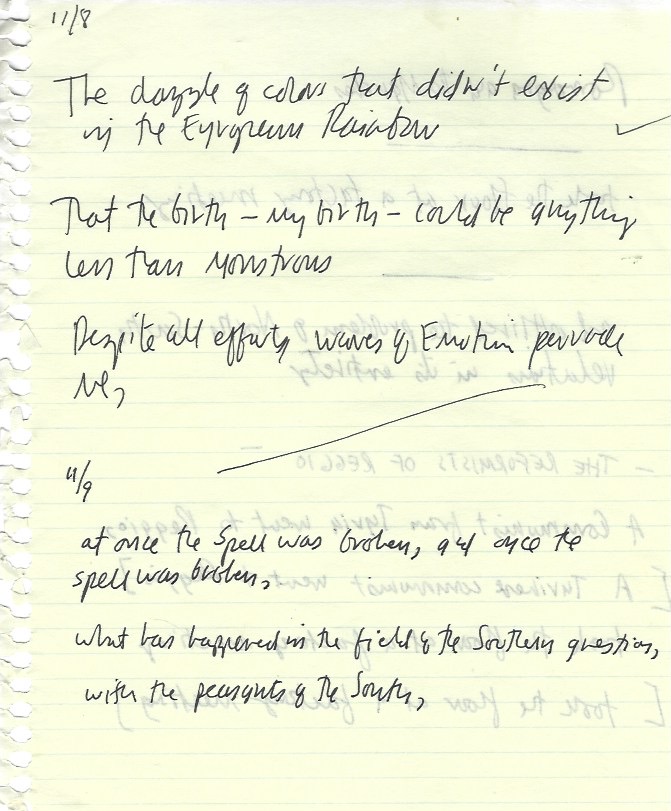 11/8
The dazzle of colors that didn't exist
in the European Rainbow
That the birth – my birth – could be anything
less than monstrous
Despite all efforts, waves of Emotion pervade
me,
11/9
at once the spell was broken, and once the
spell was broken,
what has happened in the field of the Southern question,
with the peasants of the South,